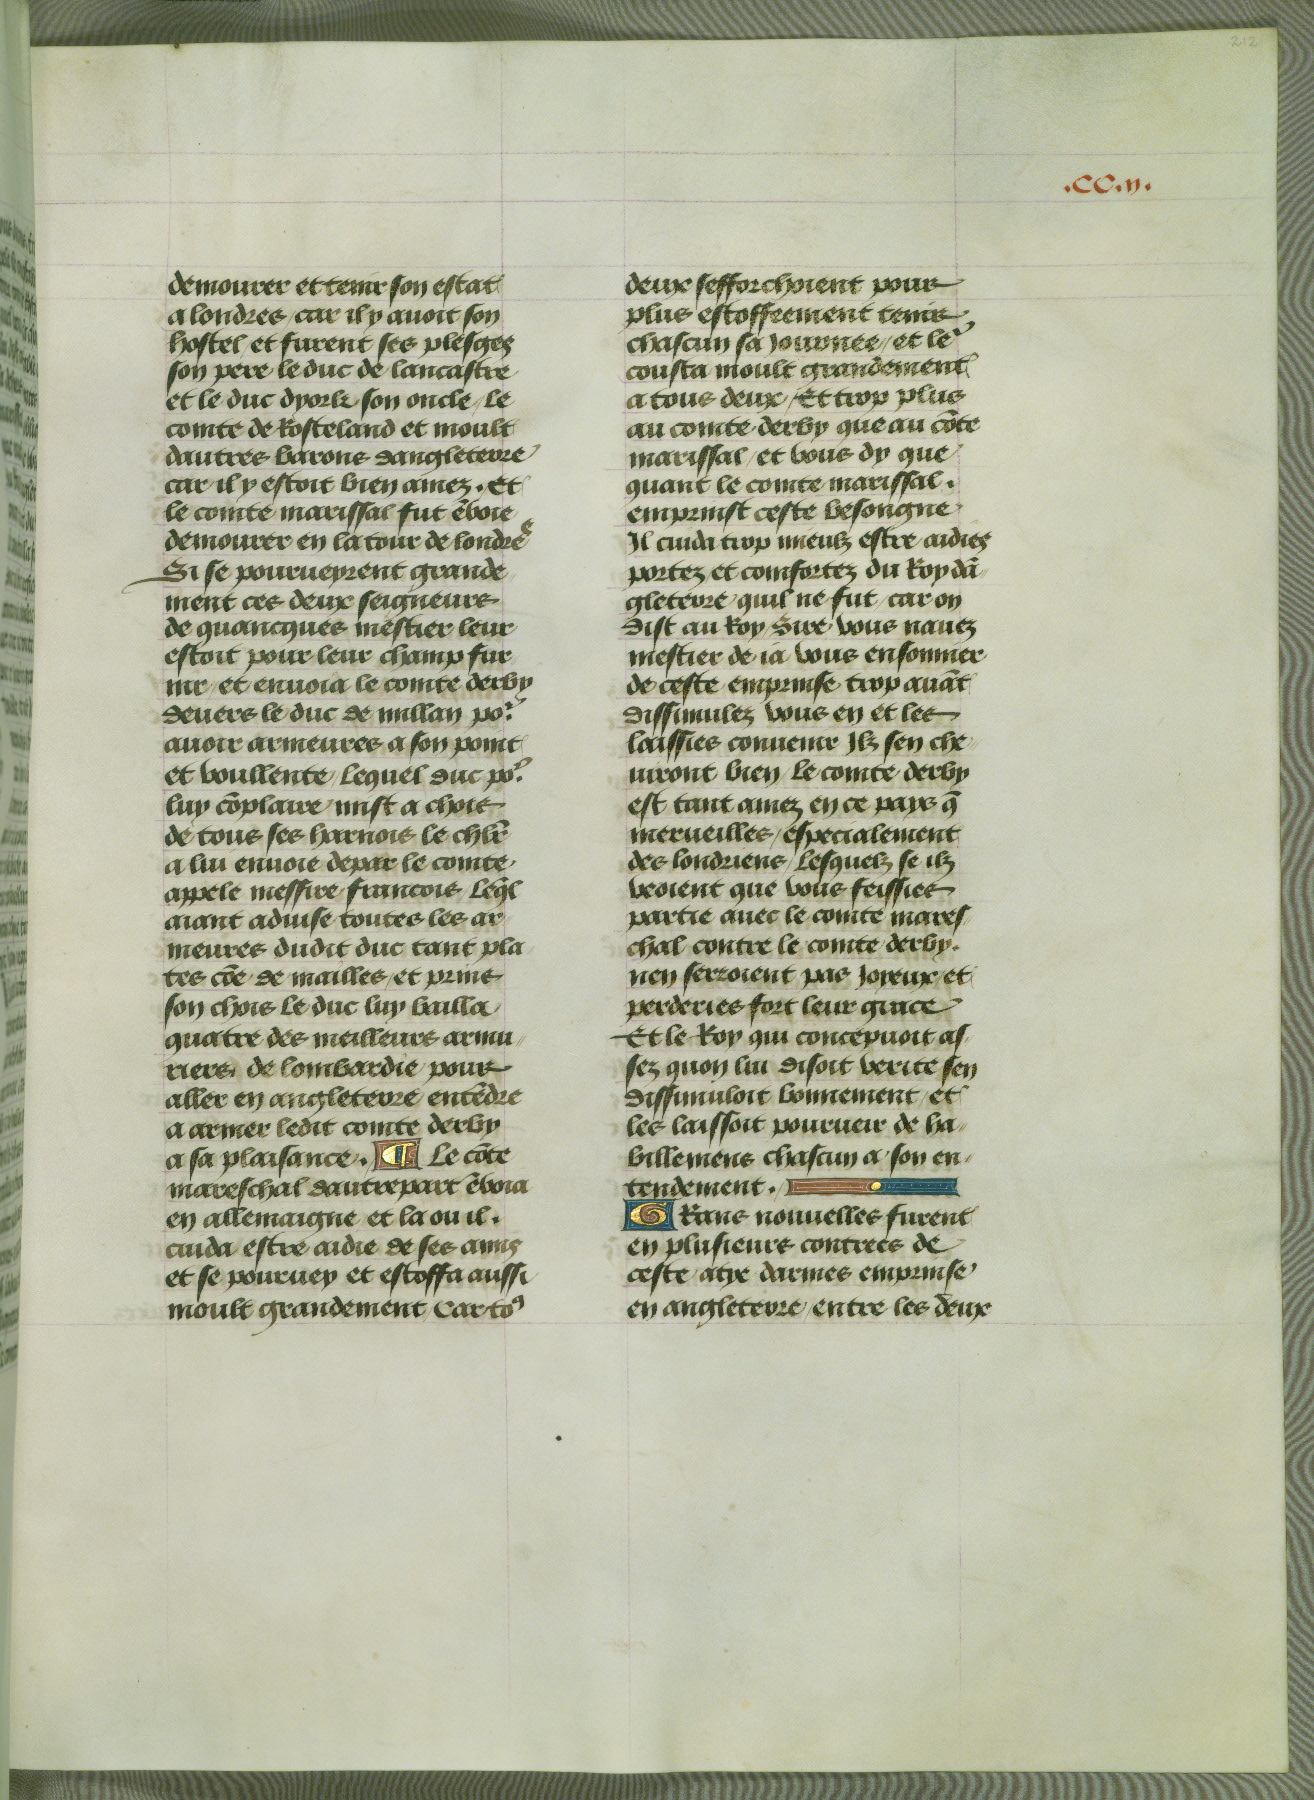 212
.CC.ij.
demourer et tenir son estat
a londres car il y auoit son
hostel et furent ses plesges
son pere le duc de lancastre
et le duc dyork son oncle / le
comte de Rosteland et moult
dautres barons dangleterre
car il y estoit bien amez. Et
le comte marissal fut ēvoie
demourer en la tour de londres
Si se pourueyrent grande
ment ces deux seigneurs
de quancques mestier leur
estoit pour leur champ fur
nir et enuoia le comte derby
deuers le duc de millan poʳ
auoir armeures a son point
et voullente / lequel duc poʳ
luy cōplaire mist a chois
de tous ses harnois le chlr̄
a lui enuoie depar le comte
appele messire francois leq̄l
aiant aduise toutes les ar
meures dudit duc tant pla
tes cōe de mailles / et prins
son chois le duc luy bailla
quatre des meilleurs armu
riers de lombardie pour
aller en angleterre entēdre
a armer ledit comte derby
a sa plaisance. ¶ Le cōte
mareschal dautrepart ēvoia
en allemaigne et la ou il.
cuida estre aidie de ses amis
et se pouruey et estoffa aussi
moult grandement / Car toꝰ
deux sefforchoient pour
plus estoffeement tenir
chascun sa Journee / et le
cousta moult grandement
a tous deux / Et trop plus
au comte derby que au cōte
marissal / et vous dy que
quant le comte marissal.
emprinst ceste besongne
Il cuida trop mieulz estre aidies
portez et comfortez du Roy dā
gleterre quil ne fut / car on
dist au Roy / Sire vous nauez
mestier de ia vous ensonnier
de ceste emprinse trop auāt
dissimulez vous en et les
laissies conuenir Ilz sen che
uiront bien / Le comte derby
est tant amez en ce pays q̄
merueilles / especialement
des londriens / Lesquelz se ilz
veoient que vous feissies
partie auec le comte mares
chal contre le comte derby.
nen serroient pas Joyeux / et
perderies fort leur grace
Et le Roy qui concepuoit as
sez quon lui disoit verite sen
dissimuloit bonnement / et
les laissoit pourueir de ha
billemens chascun a son en
tendement.
GRans nouuelles furent
en plusieurs contrees de
ceste atye darmes emprinse
en angleterre / entre les deux